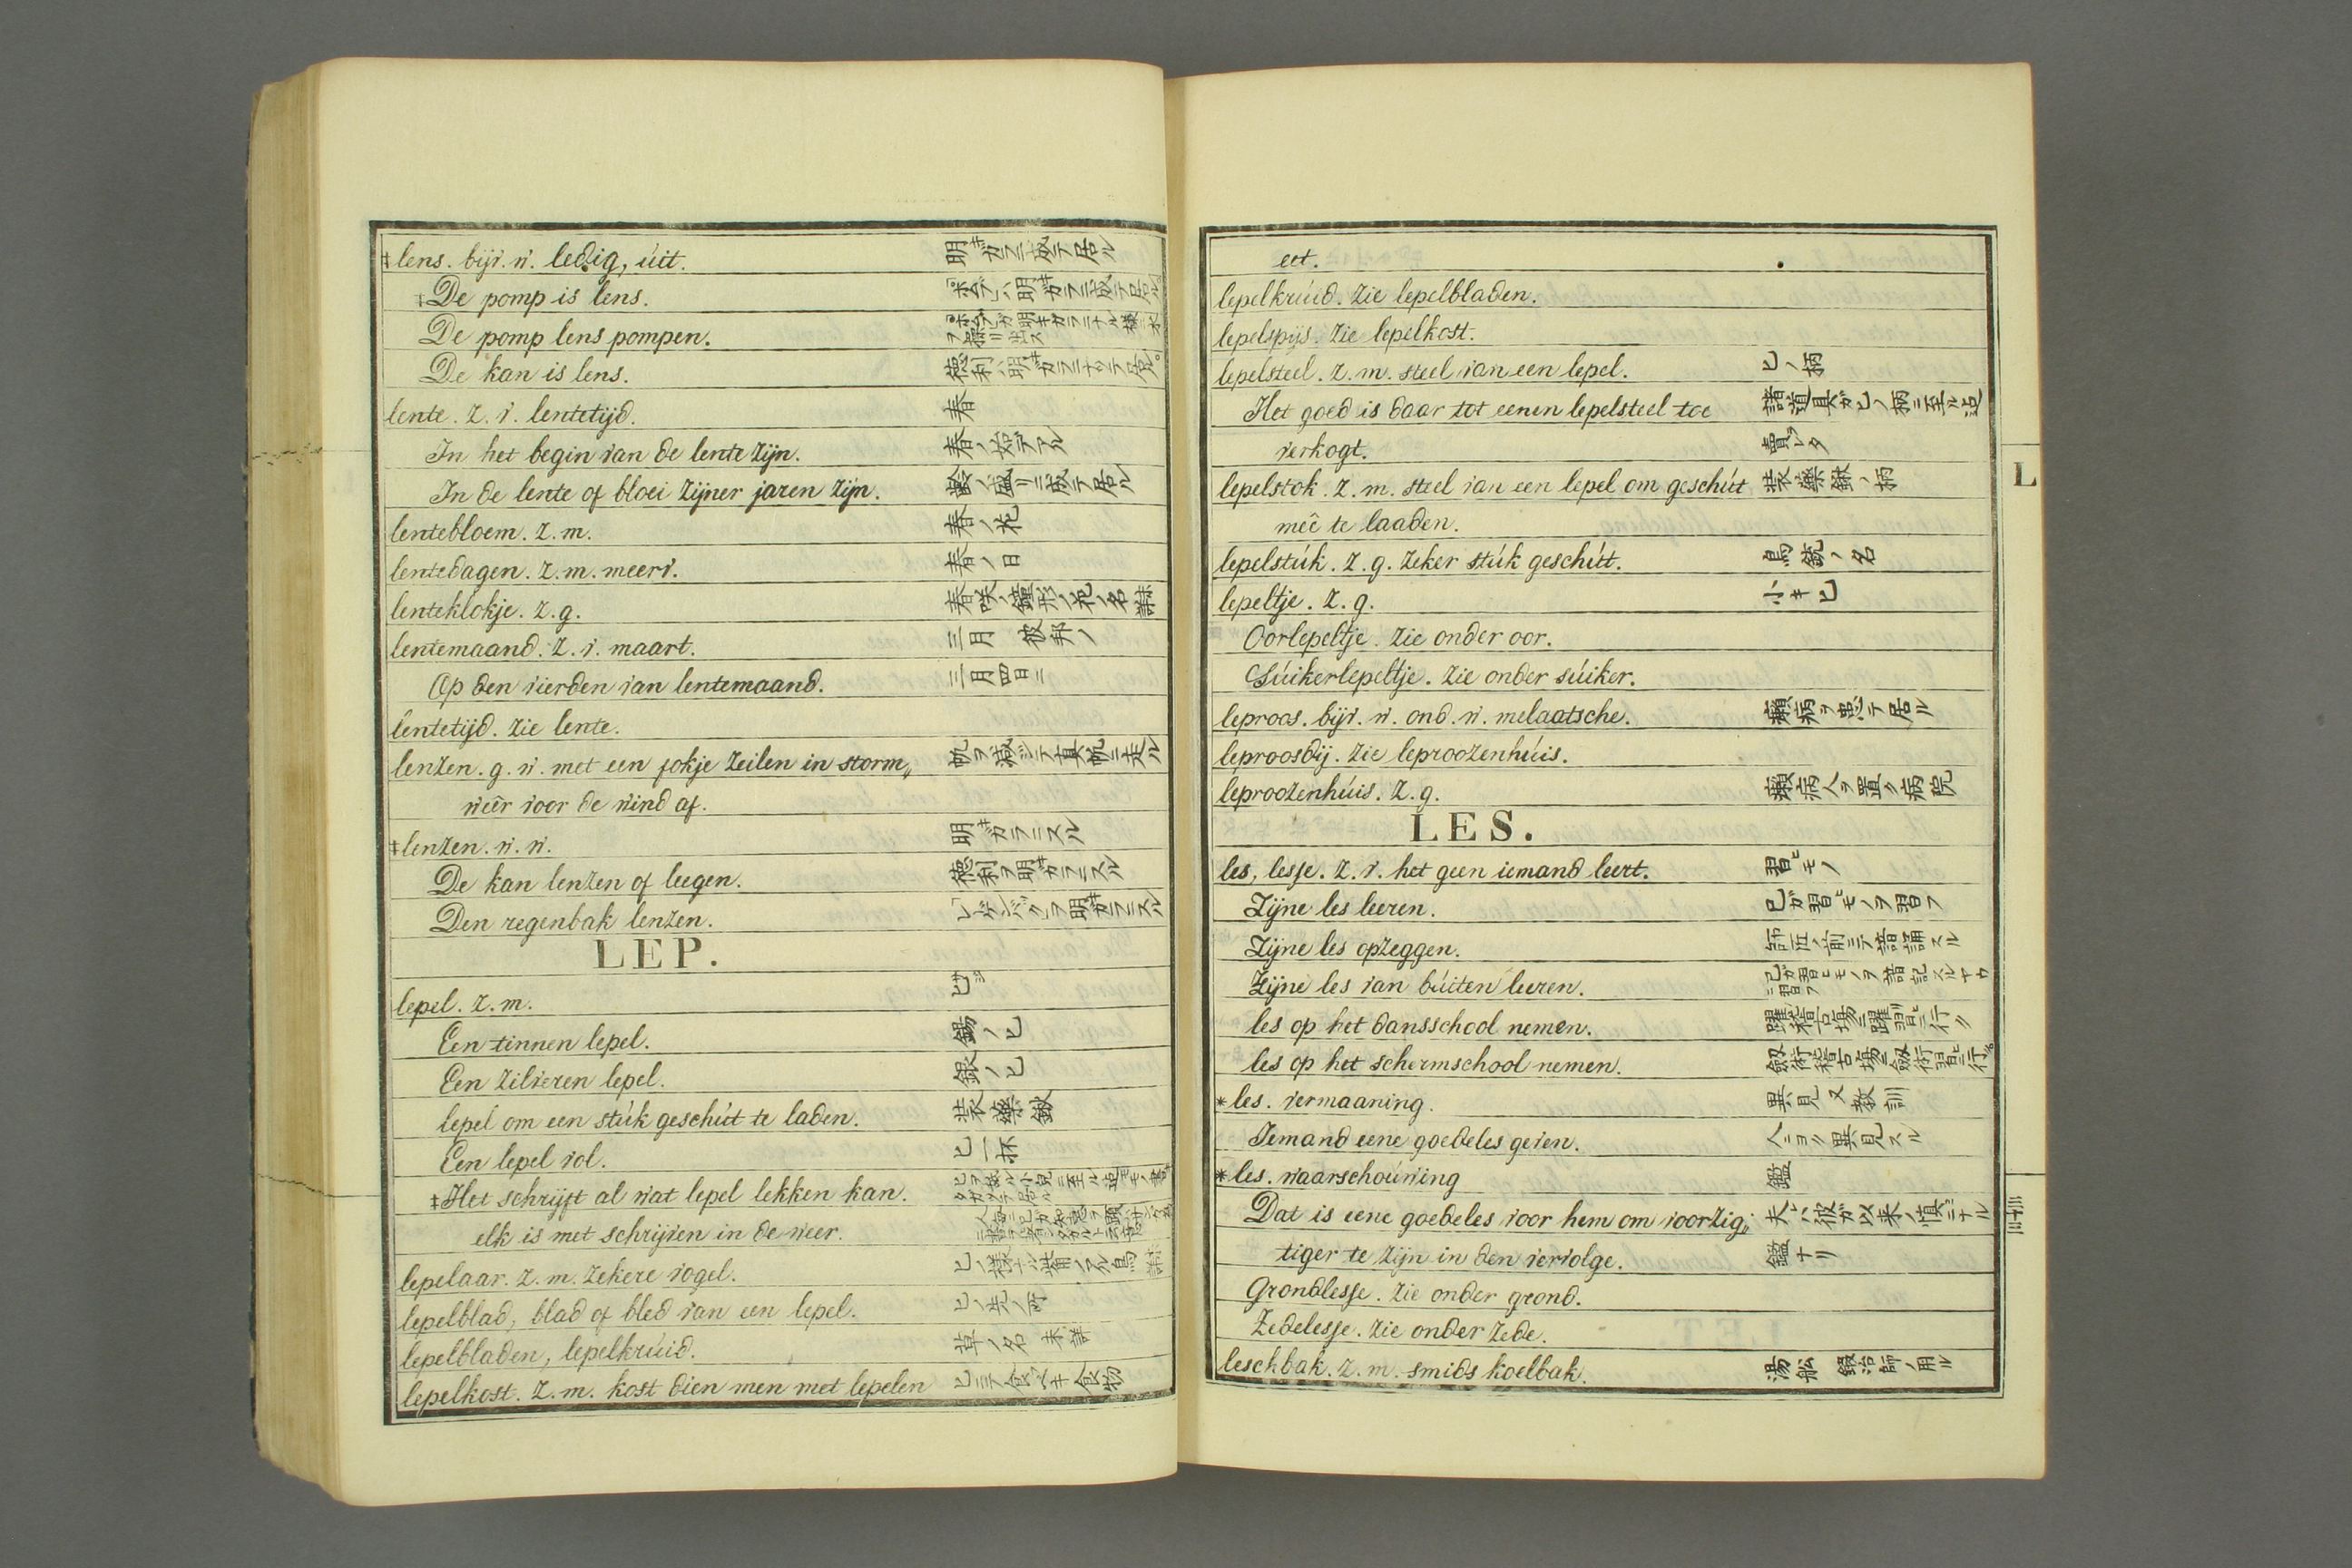 ‡lens. bijv. w. ledig, úit. 明キガラニ成テ居ル
‡De pomp is lens. 「ポムプ」ハ明キガラニ成テ居ル
De pomp lens pompen.
De kan is lens. 徳利ハ明キガラニナツテ居ル。
lente. z. v. lentetijd. 春
In het begin van de lente zijn. 春ノ始デアル
In de lente of bloei zijner jaren zijn. 齢ノ盛リニ成テ居ル
lentebloem. z. m. 春ノ花
lentedagen. z. m. meerv. 春ノ日
lenteklokje. z. g. 春咲ノ鐘形ノ花ノ名
lentemaand. z. v. maart. 三月 彼邦ノ
Op den vierden van lentemaand. 三月四日ニ
lentetijd. zie lente.
lenzen. g. w. met een jokje zeilen in storm„ 帆ヲ減ジテ真帆ニ走ル
weêr voor de wind af.
‡lenzen. w. w. 明キガラニスル
De kan lenzen of leegen. 徳利ヲ明キガラニスル
Den regenbak lenzen. 「レーゲンバック」ヲ明キガラニスル
LEP.
lepel. z. m. 匕サジ
Een tinnen lepel. 錫ノ匕
Een zilveren lepel. 銀ノ匕
lepel om een stúk geschút te laden. 装藥鍬
Een lepel vol. 匕一杯
‡Het schrijft al wat lepel lekken kan.
elk is met schrijven in de weer.
lepelaar. z. m. zekere vogel.
lepelblad, blad of bled van een lepel. 匕ノ先ノ所
lepelbladen, lepelkrúid. 草ノ名 未詳
lepelkost. z. m. kost dien men met lepelen 匕ニテ食フベキ食物
eet.
lepelkrúid. zie lepelbladen.
lepelspijs. zie lepelkost.
lepelsteel. z. m. steel van een lepel. 匕ノ柄
Het goed is daar tot eenen lepelsteel toe 諸道具ガ匕ノ柄ニ至ル迄
verkogt. 賣レタ
lepelstok. z. m. steel van een lepel om geschút 装藥鍬ノ柄
meê te laaden.
lepelstúk. z. g. zeker stúk geschút. 鳥銃ノ名
lepeltje. z. g. 小キ匕
Oorlepeltje. zie onder oor.
Súikerlepeltje. zie onder súiker.
leproos. bijv. w. ond. w. melaatsche. 癩病ヲ患テ居ル
leproosdij. zie leproozenhúis.
leproozenhúis. z. g. 癩病人ヲ置ク病院
LES.
les, lesse. z. v. het geen iemand leert. 習ヒモノ
Zijne les leeren. 己ガ習ヒモノヲ習フ
Zijne les opzeggen. 師匠ノ前ニテ諳誦スル
Zijne les van búiten leeren. 己ガ習ヒモノヲ諳記スルヤウニ習フ
les op het dansschool nemen. 躍稽古場ニ躍習ヒニ行ク
les op het schermschool nemen. 劔術稽古場ニ劔術習ヒニ行ク
*les. vermaaning. 異見 又 教訓
Iemand eene goede les geven. 人ニヨク異見スル
*les. waarschoúwing 鑑
Dat is eene goede les voor hem om voorzig„ 夫レハ彼ガ以来ノ慎ミニナル
tiger te zijn in den vervolge. 鑑ナリ
Grondlesse. zie onder grond.
Zedelesse. zie onder zede.
leschbak. z. m. smids koelbak. 湯舩 鍛冶師ノ用ル
L